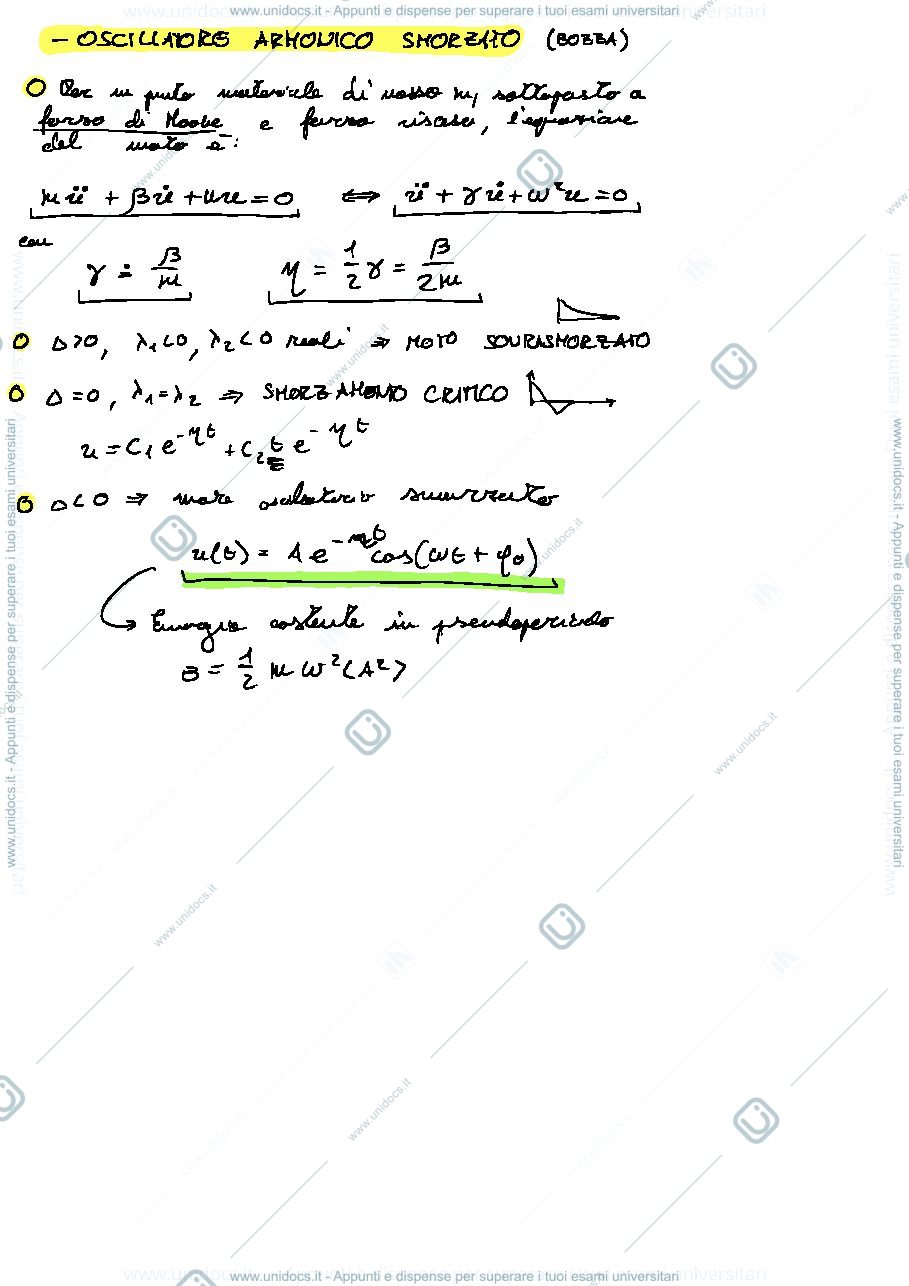 www.unidocs.it - Appunti e dispense per superare i tuoi esami universitari
- OSCILLATORE ARMONICO SMORZATO (BOZZA)
Per un punto materiale di massa m, sottoposto a
forza di Hooke e forza viscosa, l'equazione
del moto è:
mü + βu̇ + ku = 0 ⇔ ü + γu̇ + ω²u = 0
con
γ = β/m η = 1/2 γ = β/2m
Δ>0, λ₁<0, λ₂<0 reali ⇒ MOTO SOVRASMORZATO
Δ=0, λ₁=λ₂ ⇒ SMORZAMENTO CRITICO
u = C₁e^-ηt + C₂t e^-ηt
Δ<0 ⇒ moto oscillatorio smorzato
u(t) = A e^-ηt cos(ωt + φ₀)
→ Energia costante in pseudoperiodo
E = 1/2 m ω²⟨A²⟩
www.unidocs.it - Appunti e dispense per superare i tuoi esami universitari